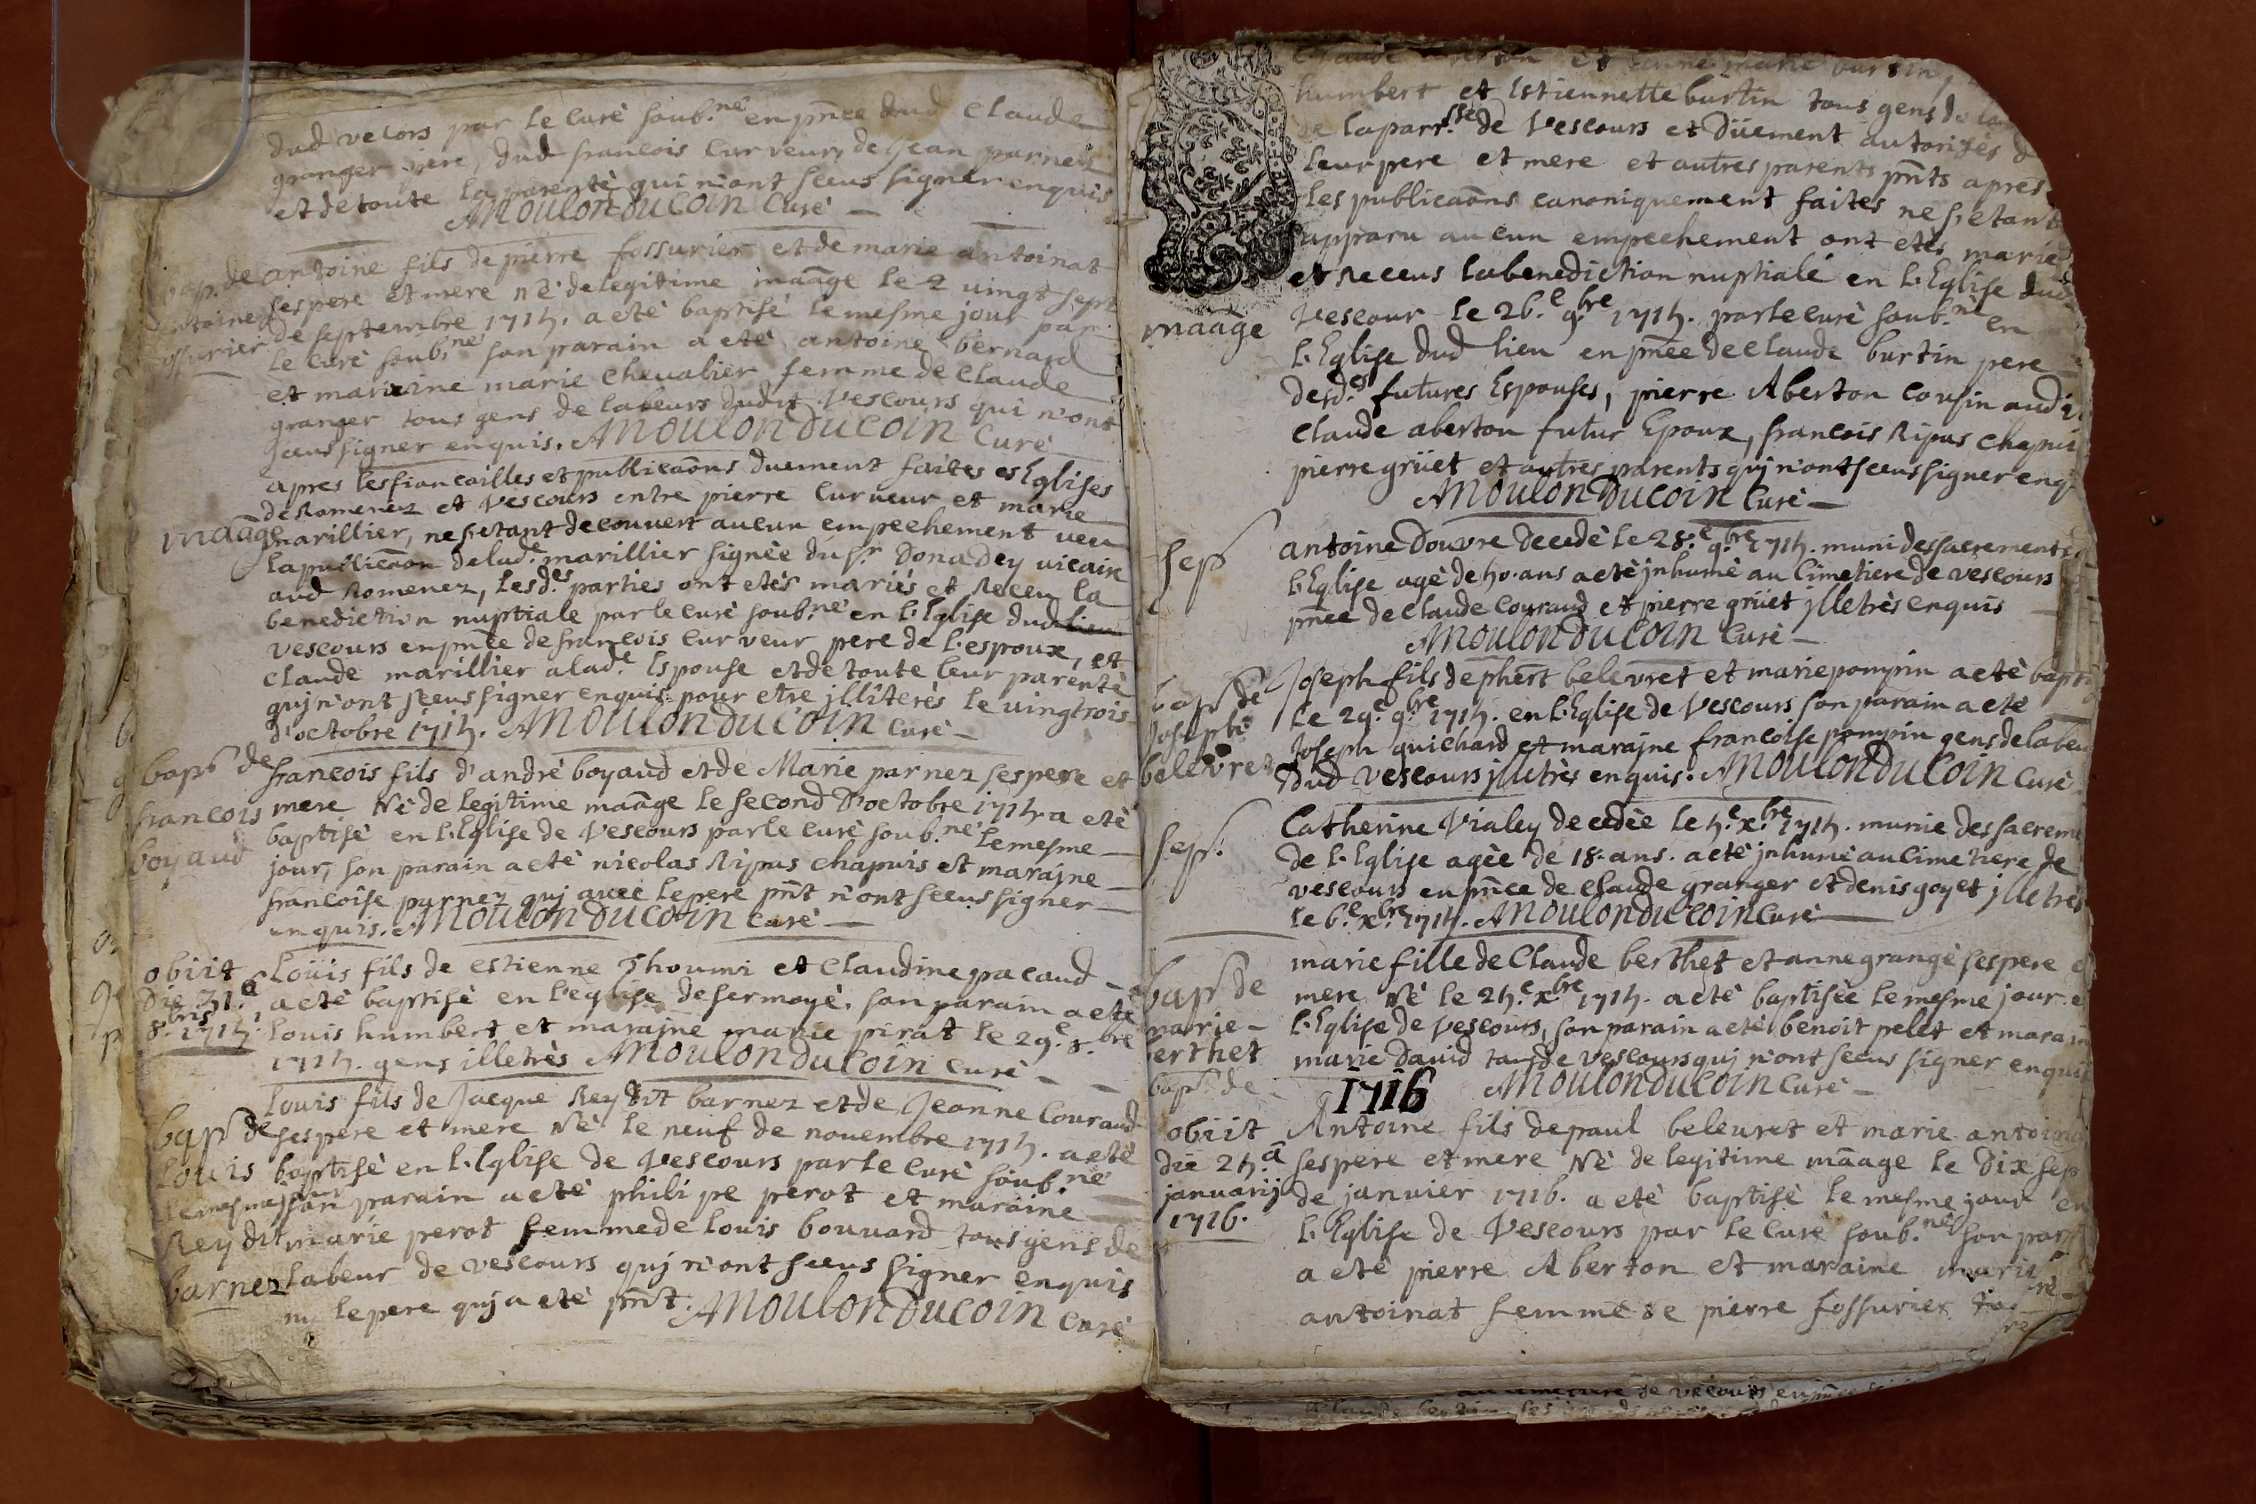 dud velors par le Curé soub.né en pñce dud Claude
granger pere, dud francois Curveur, de Jean parnez
et de toute la parenté qui n'ont sceus signer enquis
Moulon Ducoin Curé
bap. de antoine fils de pierre fossurier et de marie antoinat
antoine ses pere et mere né de legitime maãge le 2 vingt sept
fossurier de septembre 1715. a eté baptisé le mesme jour par
le Curé soub.né son parain a eté antoine bernard
et maraine marie Chevalier femme de Claude
granger tous gens de labeurs dudit Vescours qui n'ont
sceus signer enquis. Moulon Ducoin Curé
apres les fiancailles et publicaõns duement faites es Eglises
de Romenez et Vescours entre pierre Curveur et marie
maãge marillier, ne s'etant decouvert aucun empechement veu
la publicaõn de lad.e marillier signée du s.r Donadey vicaire
aud Romenez, les d.es parties ont etés mariés et Receu la
benediction nuptiale par le Curé soub.né en l'Eglise dud lieu
vescours en pñce de francois Curveur pere de l'espoux, et
Claude marillier a lad.e Espouse et de toute leur parenté
quj n'ont sceus signer enquis pour etre jlliterés le vingtrois
d'octobre 1715. Moulon Ducoin Curé
bap.s de francois fils d'andré boyaud et de Marie parnez ses pere et
francois mere Né de legitime maãge le second d'octobre 1715. a eté
boyaud baptisé en l'Eglise de Vescours par le Curé soub.né le mesme
jour, son parain a eté nicolas Ripus chapuis et marajne
francoise parnez quj avec le pere pñt n'ont sceus signer
enquis. Moulon Ducoin Curé
obiit Loüis fils de estienne Thoumi et Claudine pacaud
Die 31.a a eté baptisé en l'eglise de sermoyé. son parain a eté
8.bris 1715. Louis humbert et marajne marie pirat le 29.e 8.bre
1715. gens illetrés Moulon Ducoin Curé
Louis fils de Jacque Rey dit barnez et de Jeanne Couraud
bap.s de ses pere et mere Né le neuf de novembre 1715. a eté
Louis baptisé en l'Eglise de Vescours par le Curé soub.né
le mesme jour son parain a eté philipe perot et maraine
Rey dit marie perot femme de Louis bouvard tous gens de
barnez labeur de vescours quj n'ont sceus signer enquis
ny le pere quj a eté pñt. Moulon Ducoin Curé
Claude aberton et marie burtin
humbert et Estiennette burtin tous gens de
de la parr.sse de Vescours et Düement autorisés
leur pere et mere et autres parents pñts apres
les publicaõns canoniquement faites ne s'etant
apparu aucun empechement ont etés mariés
et Receus la benediction nuptiale en l'Eglise dud
maãge Vescour le 26.e 9.bre 1715. par le Curé soub.né en
l'Eglise dud lieu en pñce de Claude burtin pere
desd.es futures Espouses, pierre Aberton cousin audi
Claude aberton futur Epoux, francois Ripus chapui
pierre grüet et autres parents quj n'ont sceus signer enq
Moulon Ducoin Curé
sep antoine Douvre Decedé le 28.e 9.bre 1715. muni des sacrements
l'Eglise agé de 50. ans a eté jnhumé au Cimetiere de vescours
pñce de Claude Couraud et pierre grüet jlletrés enquis
Moulon Ducoin Curé
bap.s de Joseph fils de phert belevret et marie pompin a eté bapti
Joseph le 29.e 9.bre 1715. en l'Eglise de Vescours son parain a eté
belevret Joseph guichard et marajne francoise pompin gens de labeu
Dud Vescours jlletrés enquis. Moulon Ducoin Curé
sep. Catherine Vialey decedée le 5.e x.bre 1715. munie des sacreme
de l'Eglise agée de 18. ans. a eté jnhumé au Cimetiere de
vescours en pñce de Claude granger et denis goyet jlletrés
le 6.e x.bre 1715. Moulon Ducoin Curé
marie fille de Claude berthet et anne grangé ses pere et
bap.s de mere Né le 25.e x.bre 1715. a eté baptisée le mesme jour e
marie l'Eglise de Vescours, son parain a eté benoit pelet et marain
berthet marie David tous de Vescours quj n'ont sceus signer enquis
bap.s de 1716 Moulon Ducoin Curé
obiit Antoine fils de paul belevret et marie antoina
die 25.a ses pere et mere Né de legitime mãage le dix sep
januarij de janvier 1716. a eté baptisé le mesme jour en
1716. l'Eglise de Vescours par le Curé soub.né son par
a eté pierre Aberton et maraine marie
antoinat femme de pierre fossurier